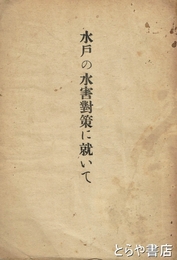 水戸の水害對策に就いて
とらや書店